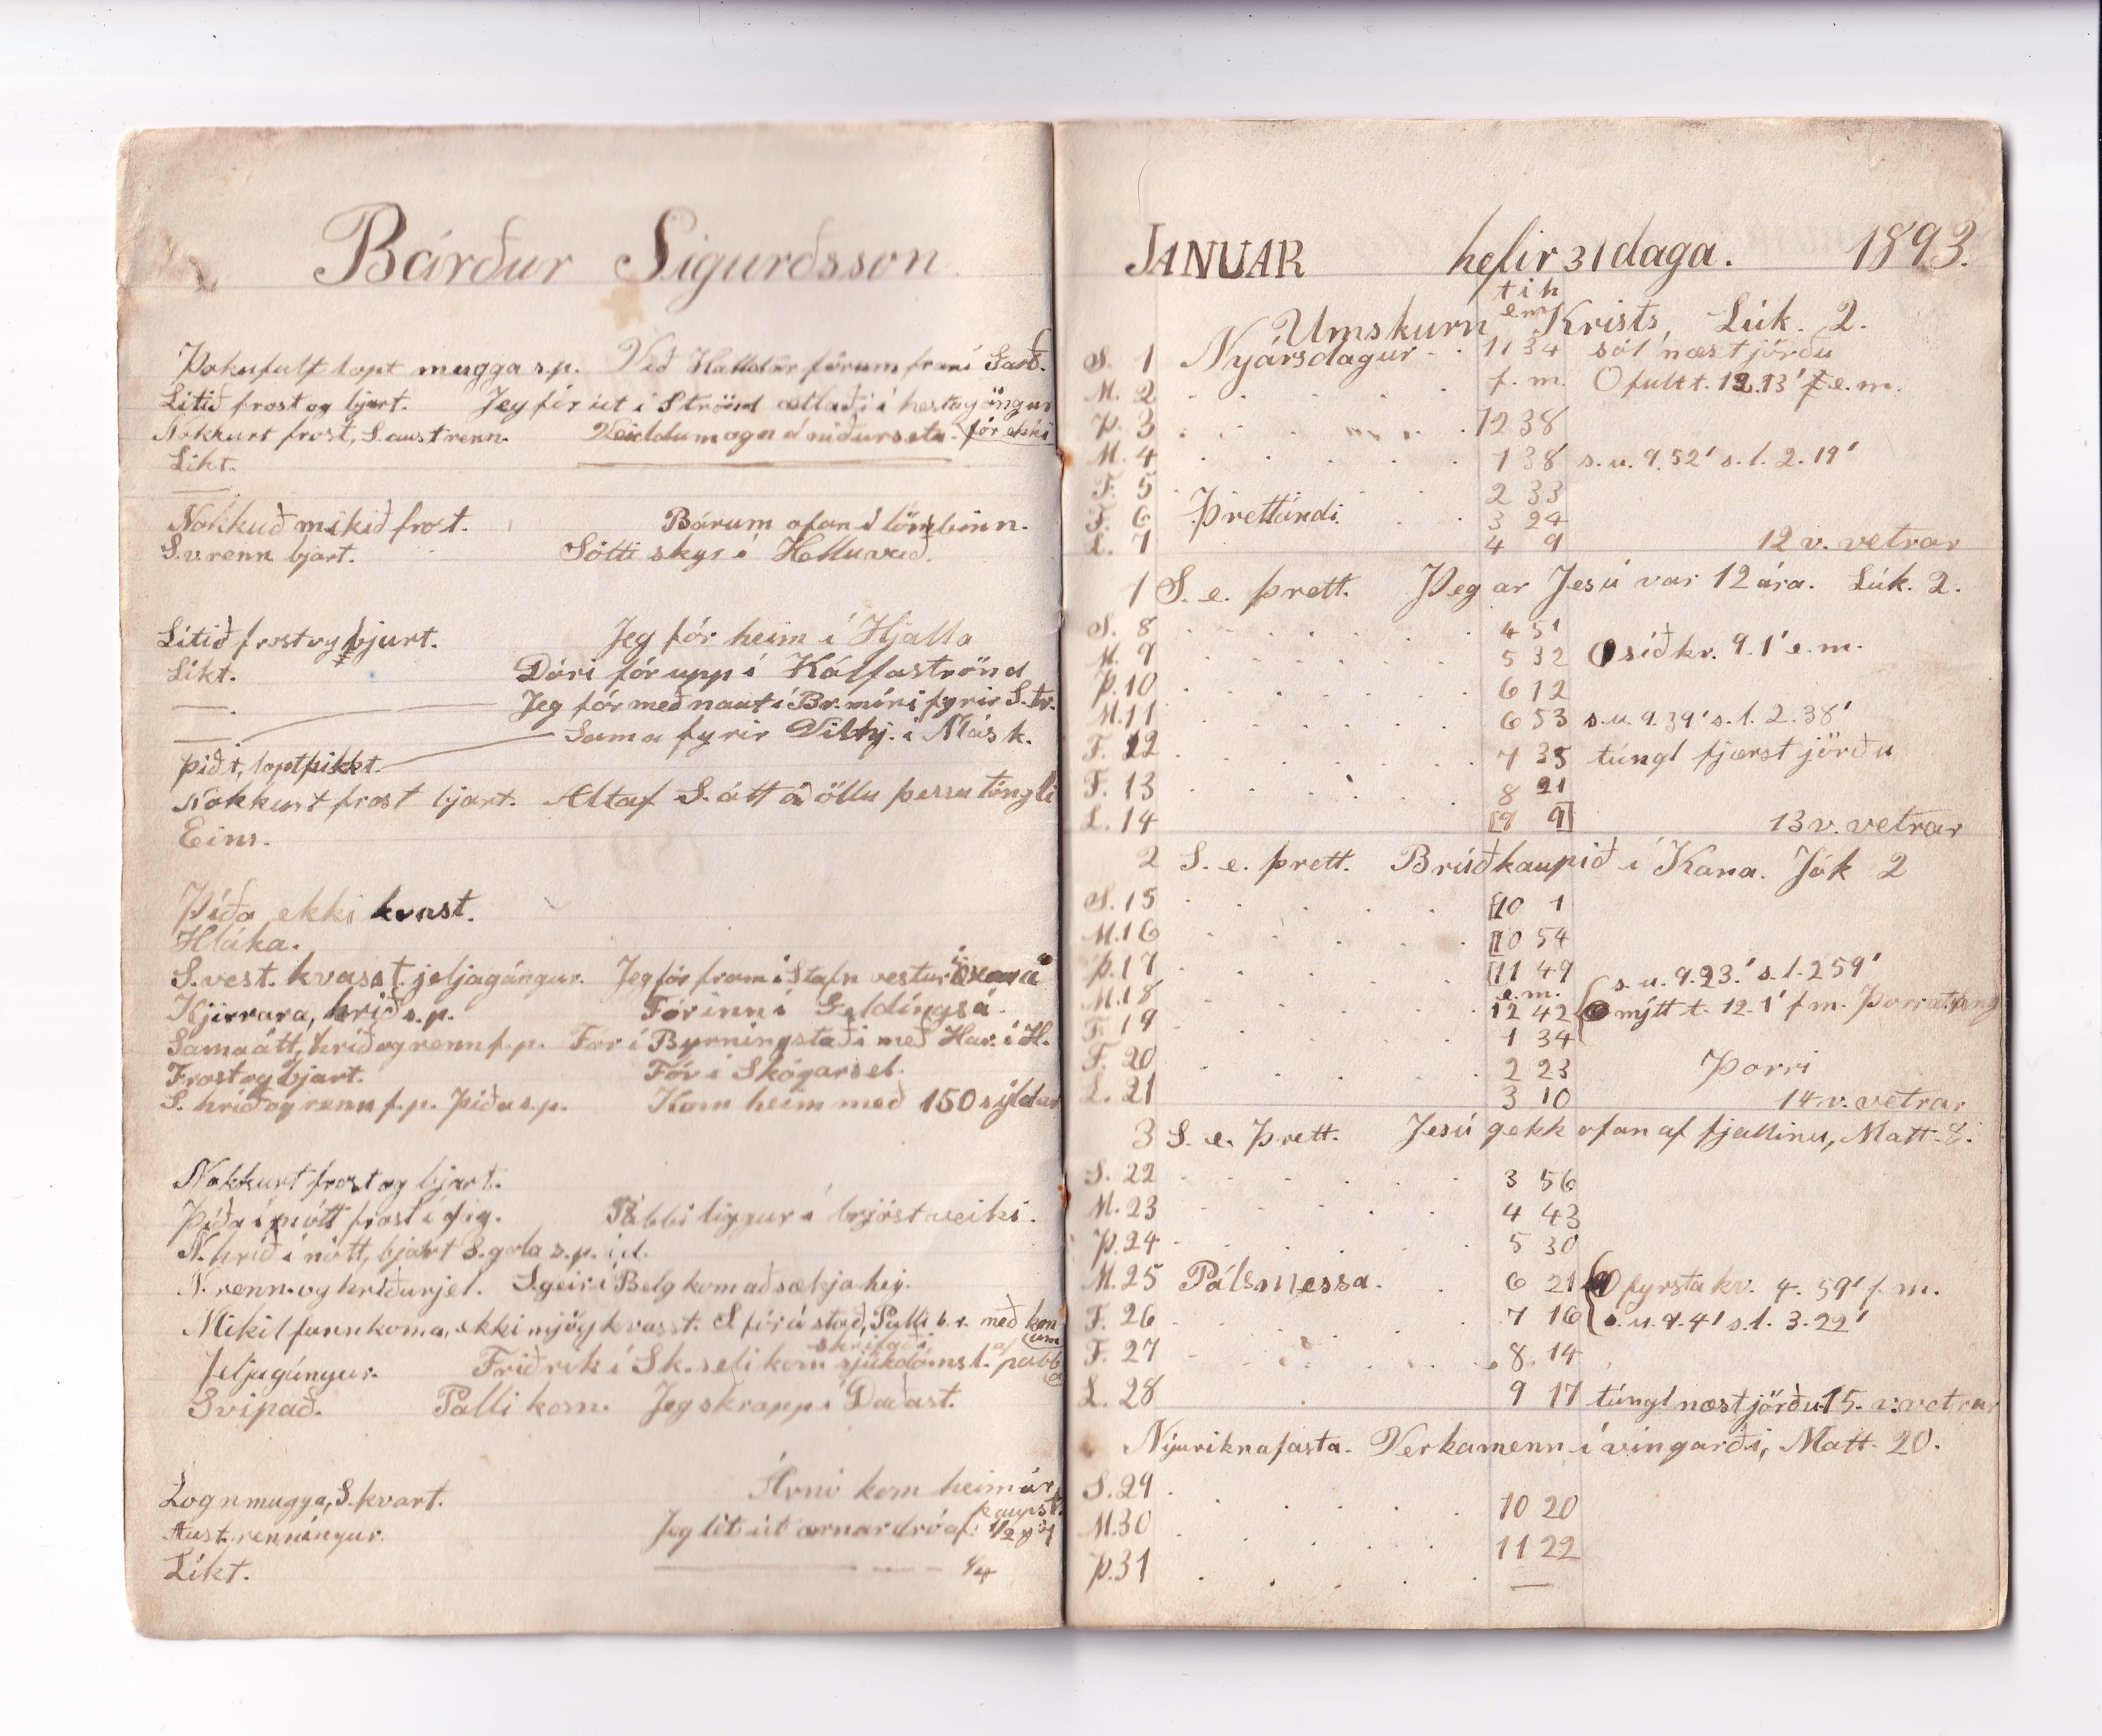 Bárður Sigurðsson.
Þokufult lopt mugga s.p. Við Halldór fórum fram í Garð.
Lítið frost og bjart. Jeg fór út í Strönd ætlaði í hestagöngur
Nokkurt frost, S. aust renn. (fór ekki
Líkt.
Nokkuð mikið frost. Bárum ofan á
S.v. renn bjart. Sótti skyr í Helluvað.
Lítið frost og bjart. Jeg fór heim í Hjalla
Líkt. Dóri fór upp í Kálfaströnd
Jeg fór með naut í Br. mýri fyrir S. tr.
Sama fyrir í Másk.
Þiðt, loptþikkt.
Nokkurt frost bjart. Altaf S. átt á öllu þessu túngli
Eins.
Þíða ekki kvast.
Hláka.
S. vest. kvasst jeljagángur. Jeg fór fram í Stafn vestur í
Kjirrara, hríð s.p. Fór inn í Geldíngsá.
Sama átt, hríð og renn f.p. Fór í Byrningstaði með Har. í H.
Frost og bjart. Fór í Skógarsel.
S. hríð og renn f.p. Þíða s.p. Kom heim með 150 syldar
Nokkurt frost og bjart.
Þíða í nótt frost í dag. Pabbi liggur í brjóstveiki.
N. hríð í nótt, bjart S. gola s.p. í d.
N. renn. og hríðurjel. S.geir í Belg kom að sækja hey.
Mikil fannkoma, ekki mjög kvasst. S fór á stað, Palli b.r. með kon
um
skrifaði
Jeljagángur. Friðrik í Sk.seli kom sjúkdómsl. af pabb
a
Svipað. Palli kom. Jeg skrapp í Daðast.
Logn mugga, S. kvart. Árni kom heim úr
kaupst.
Aust. renníngur. Jeg lét út
Líkt. 1/4
JANUAR hefir 31 daga. 1893.
t í h
e m
Umskurn Krists, Lúk. 2.
S. 1 Nýársdagur 11 34 sól næst jörðu
M. 2 f. m. fult t. 12.13' e. m.
Þ. 3 12 38
M. 4 1 38 s. u. 9. 52' s. l. 2. 19'
F. 5 2 33
F. 6 Þrettándi 3 24
L. 7 4 9 12 v. vetrar
1 S. e. þrett. Þegar Jesú var 12 ára. Lúk. 2.
S. 8 4 51
M. 9 5 32 síð kv. 9. 1' e. m.
Þ. 10 6 12
M. 11 6 53 s. u. 9. 39' s. l. 2. 38'
F. 12 7 35 túngl fjærst jörðu
F. 13 8 21
L. 14 [9 9] 13 v. vetrar
2 S. e. þrett. Brúðkaupið í Kana. Jók 2
S. 15 [10 1
M. 16 [10 54
Þ. 17 [11 49 s. u. 9. 23.' s. l. 2 59'
e. m.
M. 18 12 42 nýtt t. 12. 1' f m. Þorratúng
F. 19 1 34
F. 20 2 23 Þorri
L. 21 3 10 14 v. vetrar
3 S. e. Þrett. Jesú gekk ofan af fjallinu, Matt. 8.
S. 22 3 56
M. 23 4 43
Þ. 24 5 30
M. 25 Pálsmessa. 6 21 fyrsta kv. 4. 59' f. m.
F. 26 7 16 s. u. 9. 4' s. l. 3. 22'
F. 27 8. 14
L. 28 9 17 túngl næst jörðu 15. v. vetrar
Níuviknafasta. Verkamenn í víngarði, Matt. 20.
S. 29
M. 30 10 20
Þ. 31 11 22